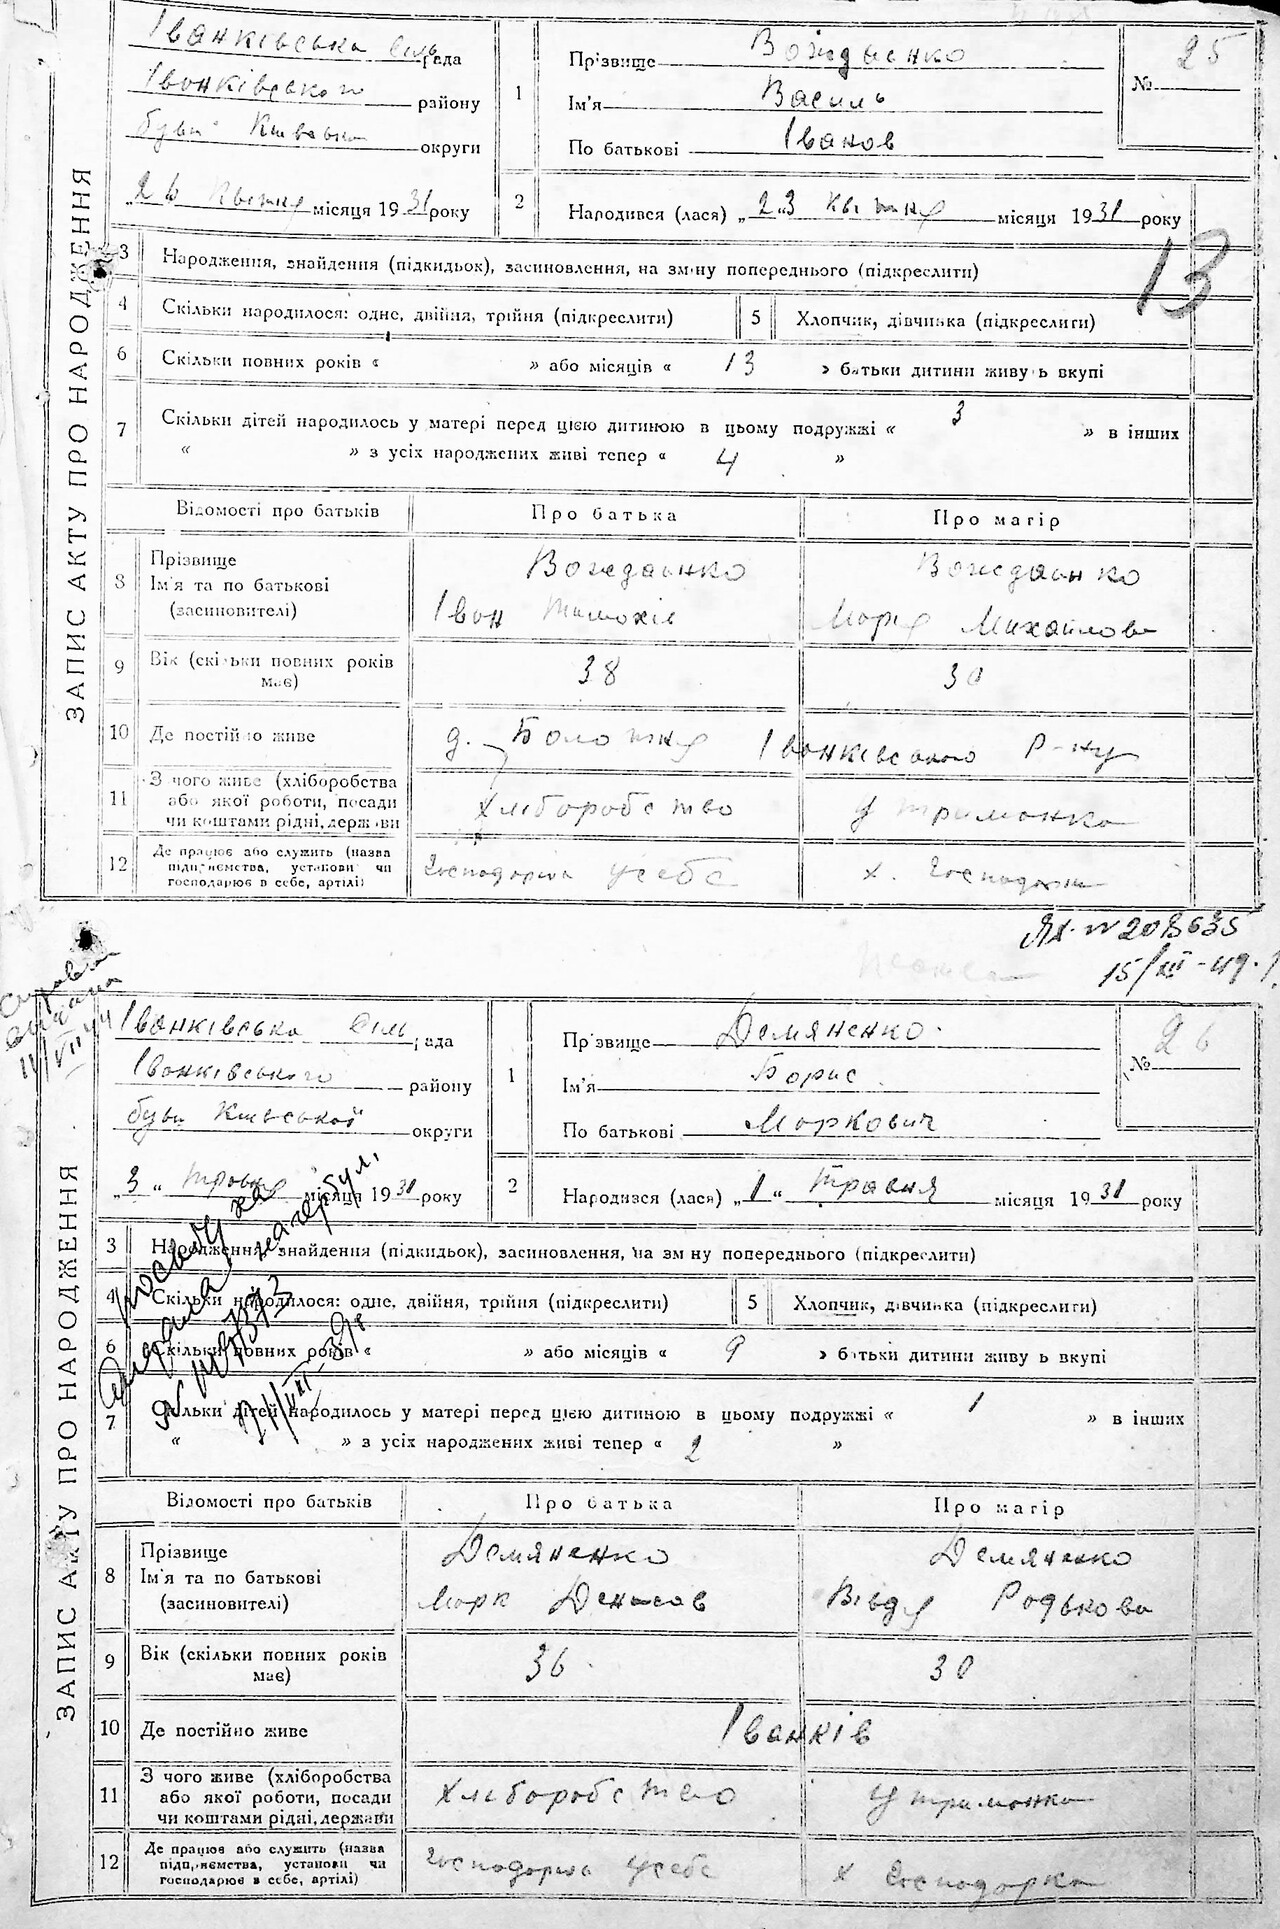 ЗАПИС АКТУ ПРО НАРОДЖЕННЯ
Іванківська сіль рада
Іванківського району
бувш Київська округи
„26 Квітня місяця 1931 року
1 Прізвище Вожедаенко
Ім'я Василь
По батькові Іванов
№ 25
2 Народився (лася) „23 квітня місяця 1931 року
13
3 Народження, знайдення (підкидьок), засиновлення, на зміну попереднього (підкреслити)
4 Скільки народилося: одне, двійня, трійня (підкреслити) 5 Хлопчик, дівчинка (підкреслити)
6 Скільки повних років « » або місяців « 13 » батьки дитини живуть вкупі
7 Скільки дітей народилось у матері перед цією дитиною в цьому подружжі « 3 » в інших
« » з усіх народжених живі тепер « 4 »
Відомості про батьків Про батька Про матір
8 Прізвище Вожедаенко Вожедаенко
Ім'я та по батькові Іван Тимохів Марія Михайлова
(засиновителі)
9 Вік (скільки повних років має) 38 30
10 Де постійно живе д. Болотня Іванківського Р-ну
11 З чого живе (хліборобства Хліборобство Утриманка
або якої роботи, посади
чи коштами рідні, держави
12 Де працює або служить (назва Господарка усебе х. Господарки
підприємства, установи чи
господарює в себе, артілі)
15/III-49.
ЗАПИС АКТУ ПРО НАРОДЖЕННЯ
Іванківська Сіль рада
Іванківського району
бувш Київської округи
„3" травня місяця 1931 року
1 Прізвище Демяненко
Ім'я Борис
По батькові Маркович
№ 26
2 Народився (лася) „1" Травня місяця 1931 року
3 Народження, знайдення (підкидьок), засиновлення, на зміну попереднього (підкреслити)
4 Скільки народилося: одне, двійня, трійня (підкреслити) 5 Хлопчик, дівчинка (підкреслити)
6 Скільки повних років « » або місяців « 9 » батьки дитини живуть вкупі
7 Скільки дітей народилось у матері перед цією дитиною в цьому подружжі « 1 » в інших
« » з усіх народжених живі тепер « 2 »
Відомості про батьків Про батька Про матір
8 Прізвище Демяненко Демяненко
Ім'я та по батькові Марк Денисов Вівдя Родькова
(засиновителі)
9 Вік (скільки повних років має) 36 30
10 Де постійно живе Іванків
11 З чого живе (хліборобства Хліборобство Утриманка
або якої роботи, посади
чи коштами рідні, держави
12 Де працює або служить (назва Господарка усебе х Господарка
підприємства, установи чи
господарює в себе, артілі)